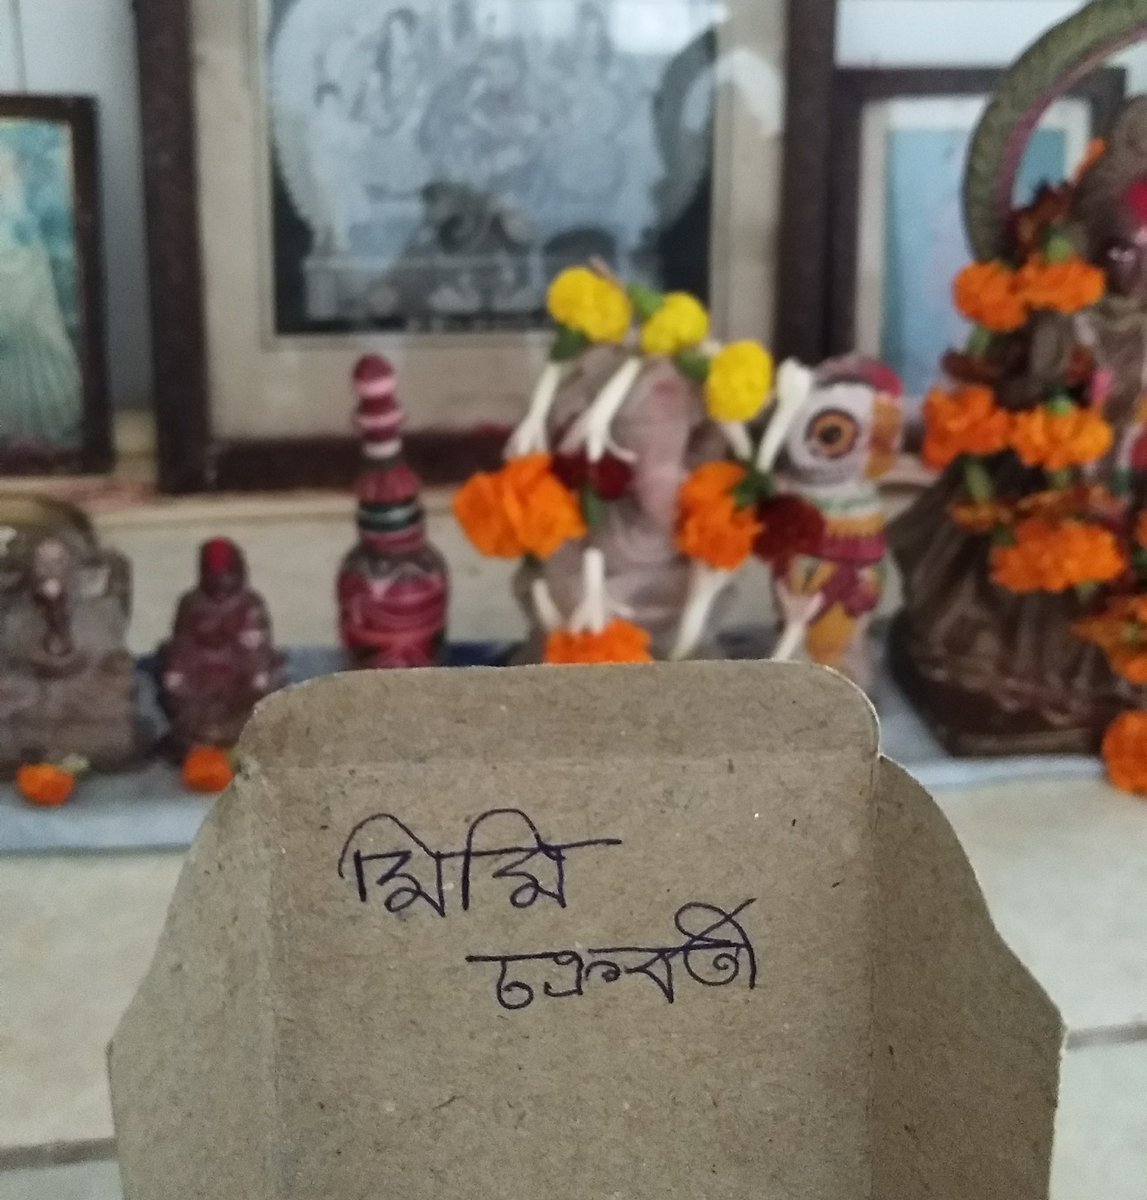 মিমি
চক্রবর্তী